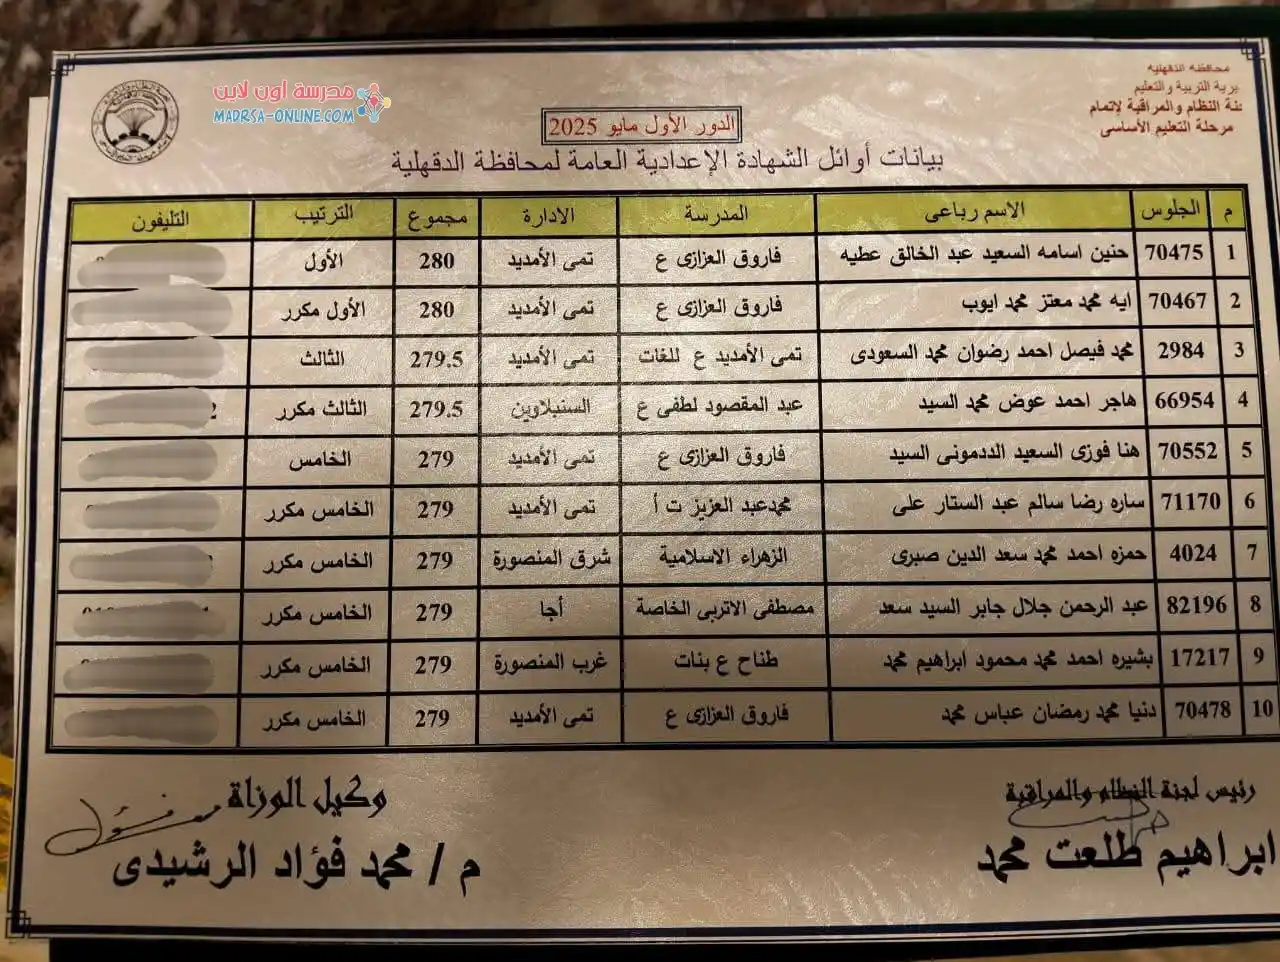 محافظة الدقهلية
مدرسة اون لاين
MADRSA-ONLINE.COM
برية التربية والتعليم
نة النظام والمراقبة لإتمام
مرحلة التعليم الأساسى
الدور الأول مايو 2025
بيانات أوائل الشهادة الإعدادية العامة لمحافظة الدقهلية
م الجلوس الاسم رباعى المدرسة الادارة مجموع الترتيب التليفون
1 70475 حنين اسامه السعيد عبد الخالق عطيه فاروق العزازى ع تمى الأمديد 280 الأول
2 70467 ايه محمد معتز محمد ايوب فاروق العزازى ع تمى الأمديد 280 الأول مكرر
3 2984 محمد فيصل احمد رضوان محمد السعودى تمى الأمديد ع للغات تمى الأمديد 279.5 الثالث
4 66954 هاجر احمد عوض محمد السيد عبد المقصود لطفى ع السنبلاوين 279.5 الثالث مكرر
5 70552 هنا فوزى السعيد الددمونى السيد فاروق العزازى ع تمى الأمديد 279 الخامس
6 71170 ساره رضا سالم عبد الستار على محمدعبد العزيز ت أ تمى الأمديد 279 الخامس مكرر
7 4024 حمزه احمد محمد سعد الدين صبرى الزهراء الاسلامية شرق المنصورة 279 الخامس مكرر
8 82196 عبد الرحمن جلال جابر السيد سعد مصطفى الاتربى الخاصة أجا 279 الخامس مكرر
9 17217 بشيره احمد محمد محمود ابراهيم محمد طناح ع بنات غرب المنصورة 279 الخامس مكرر
10 70478 دنيا محمد رمضان عباس محمد فاروق العزازى ع تمى الأمديد 279 الخامس مكرر
رئيس لجنة النظام والمراقبة
ابراهيم طلعت محمد
وكيل الوزاة
م / محمد فؤاد الرشيدى